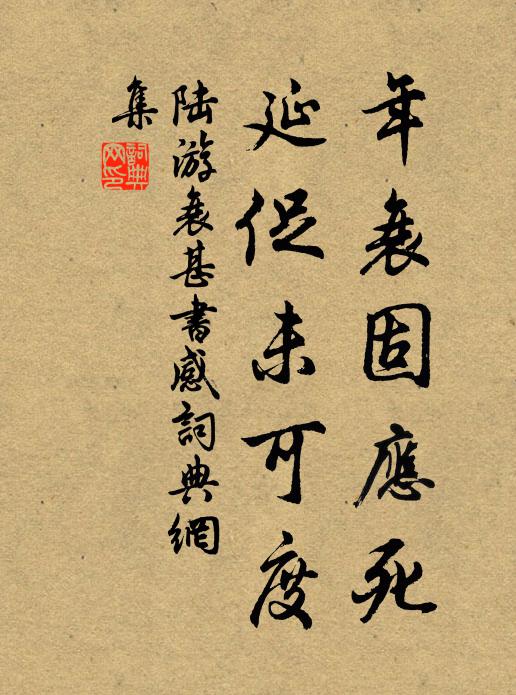 年衰固應死
延促未可度
陆游衰甚書感詞典網
集
詞典
网印